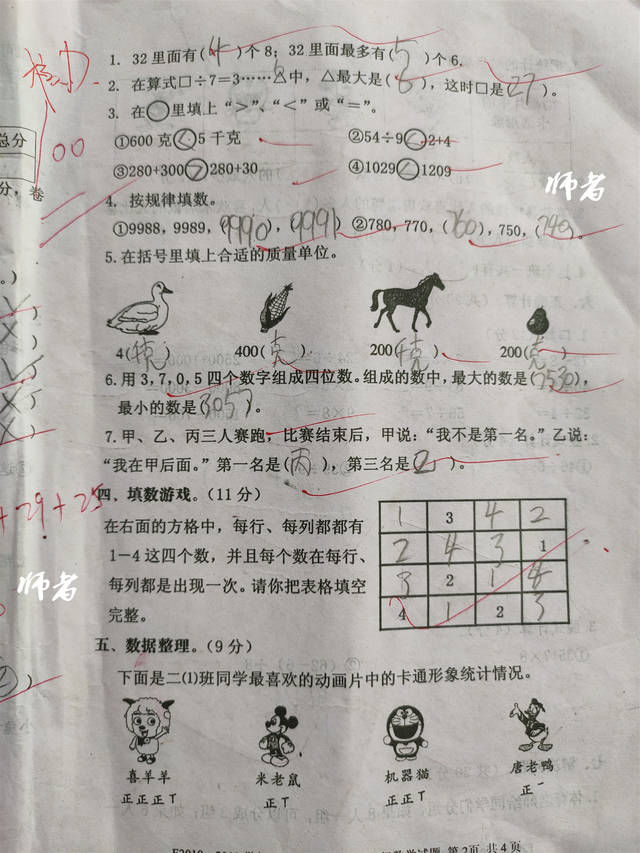 1. 32里面有(4)个8；32里面最多有(5)个6.
2. 在算式□÷7=3……△中，△最大是(6)，这时□是(27)。
3. 在○里填上“>”、“<”或“=”。
总分
100
①600克<5千克 ②54÷9<2+4
分，卷
③280+300>280+30 ④1029<1209
师者
4. 按规律填数。
①9988，9989，(9990)，(9991) ②780，770，(760)，750，(740)。
5.在括号里填上合适的质量单位。
4(千克) 400(克) 200(千克) 200(克)
6.用3，7，0，5四个数字组成四位数。组成的数中，最大的数是(7530)，
最小的数是(3057)。
7.甲、乙、丙三人赛跑，比赛结束后，甲说：“我不是第一名。”乙说：
“我在甲后面。”第一名是(丙)，第三名是(乙)。
四、填数游戏。(11分)
+29+25
在右面的方格中，每行、每列都都有
1—4这四个数，并且每个数在每行、
每列都是出现一次。请你把表格填空
完整。
1 3 4 2
2 4 3 1
3 2 1 4
4 1 2 3
师者
五、数据整理。(9分)
下面是二(1)班同学最喜欢的动画片中的卡通形象统计情况。
喜羊羊 米老鼠 机器猫 唐老鸭
正正正丅 正丅 正正丅 正一
数学试题 第2页 共4页